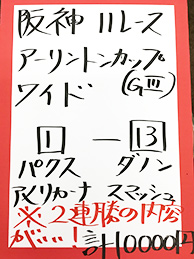 阪神11レース
アーリントンカップ
ワイド (GⅢ)
1 — 13
パクス ダノン
アメリカーナ スマッシュ
※2連勝の内容
がいい!計10000円